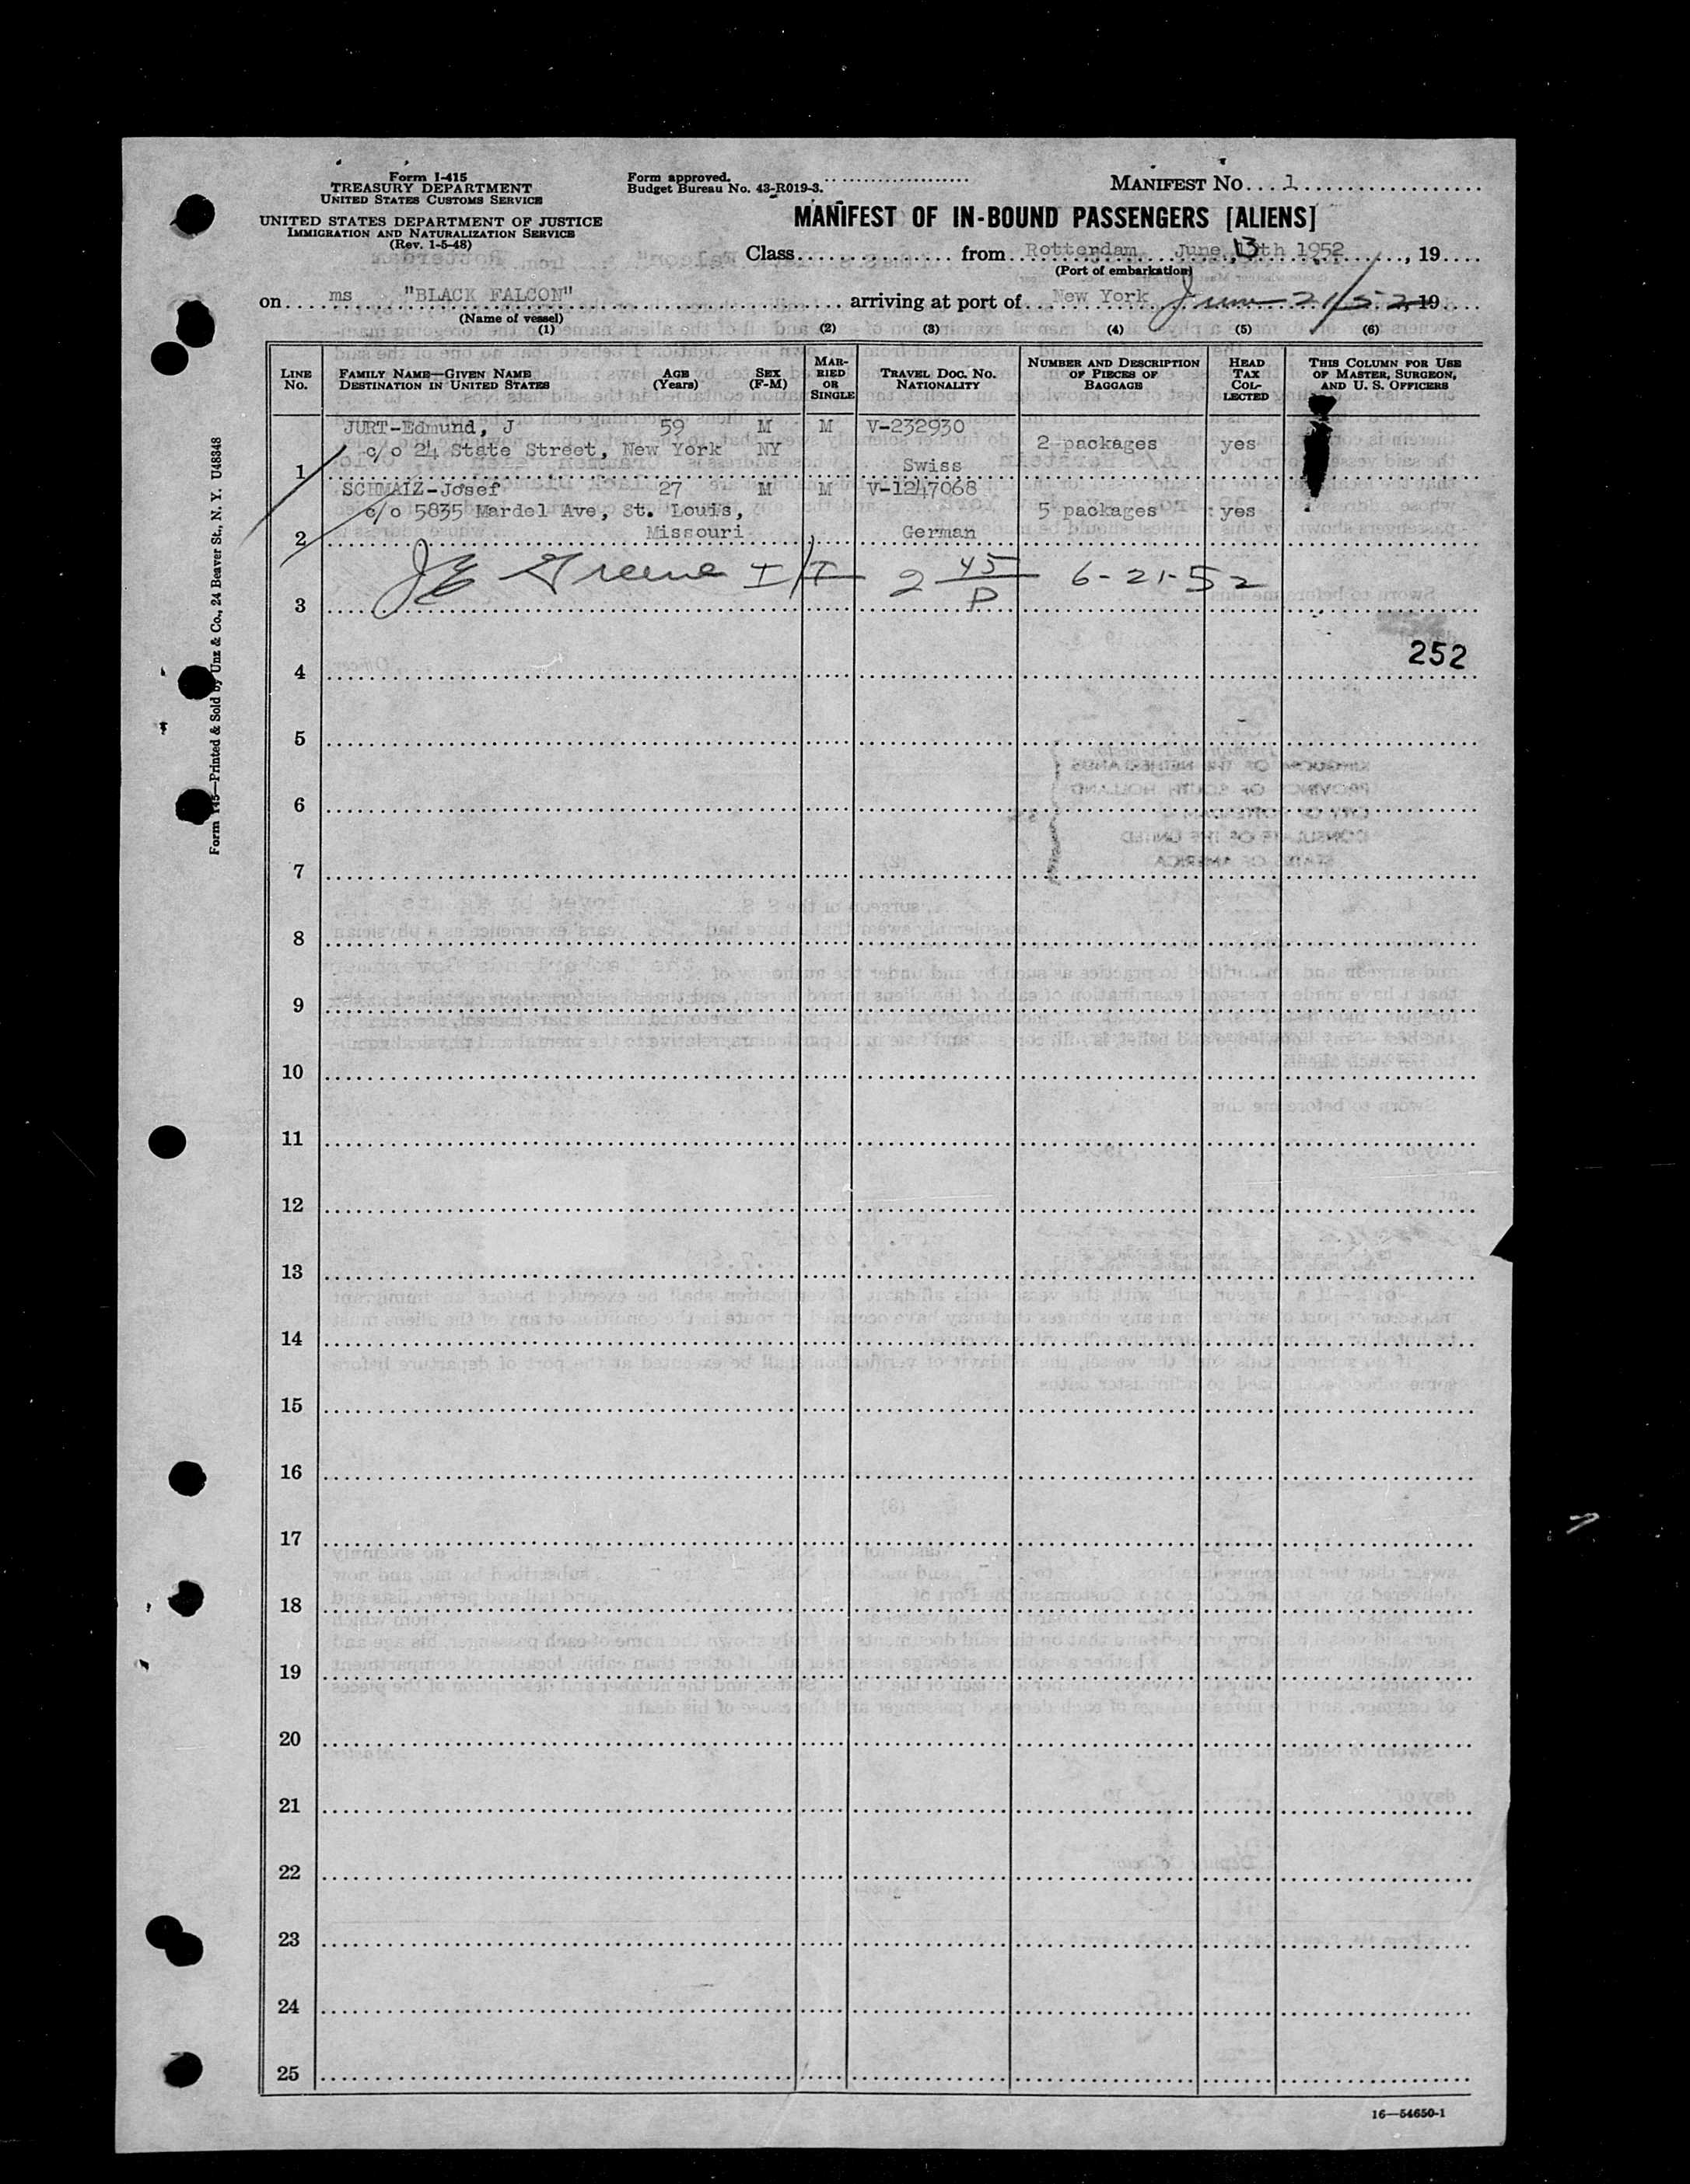 Form I-415
TREASURY DEPARTMENT
UNITED STATES CUSTOMS SERVICE
UNITED STATES DEPARTMENT OF JUSTICE
IMMIGRATION AND NATURALIZATION SERVICE
(Rev. 1-5-48)
Form approved.
Budget Bureau No. 43-R019-3.
MANIFEST NO. 1
MANIFEST OF IN-BOUND PASSENGERS [ALIENS]
Class from Rotterdam June 13th 1952, 19
(Port of embarkation)
on ms "BLACK FALCON" arriving at port of New York June 21/52, 19
(Name of vessel)
(1) (2) (3) (4) (5) (6)
LINE NO.
FAMILY NAME—GIVEN NAME
DESTINATION IN UNITED STATES
AGE (Years)
SEX (F-M)
MARRIED OR SINGLE
TRAVEL DOC. NO.
NATIONALITY
NUMBER AND DESCRIPTION OF PIECES OF BAGGAGE
HEAD TAX COLLECTED
THIS COLUMN FOR USE OF MASTER, SURGEON, AND U. S. OFFICERS
JURT-Edmund, J 59 M M V-232930
c/o 24 State Street, New York NY 2 packages yes
1 Swiss
SCHMALZ-Josef 27 M M V-1247068
c/o 5835 Mardel Ave, St. Louis, 5 packages yes
2 Missouri German
J E Greene I/I 2 45/P 6-21-52
3
252
4
5
6
7
8
9
10
11
12
13
14
15
16
17
18
19
20
21
22
23
24
25
Form I-415—Printed & Sold by Unz & Co., 24 Beaver St., N. Y. U48348
16—54650-1